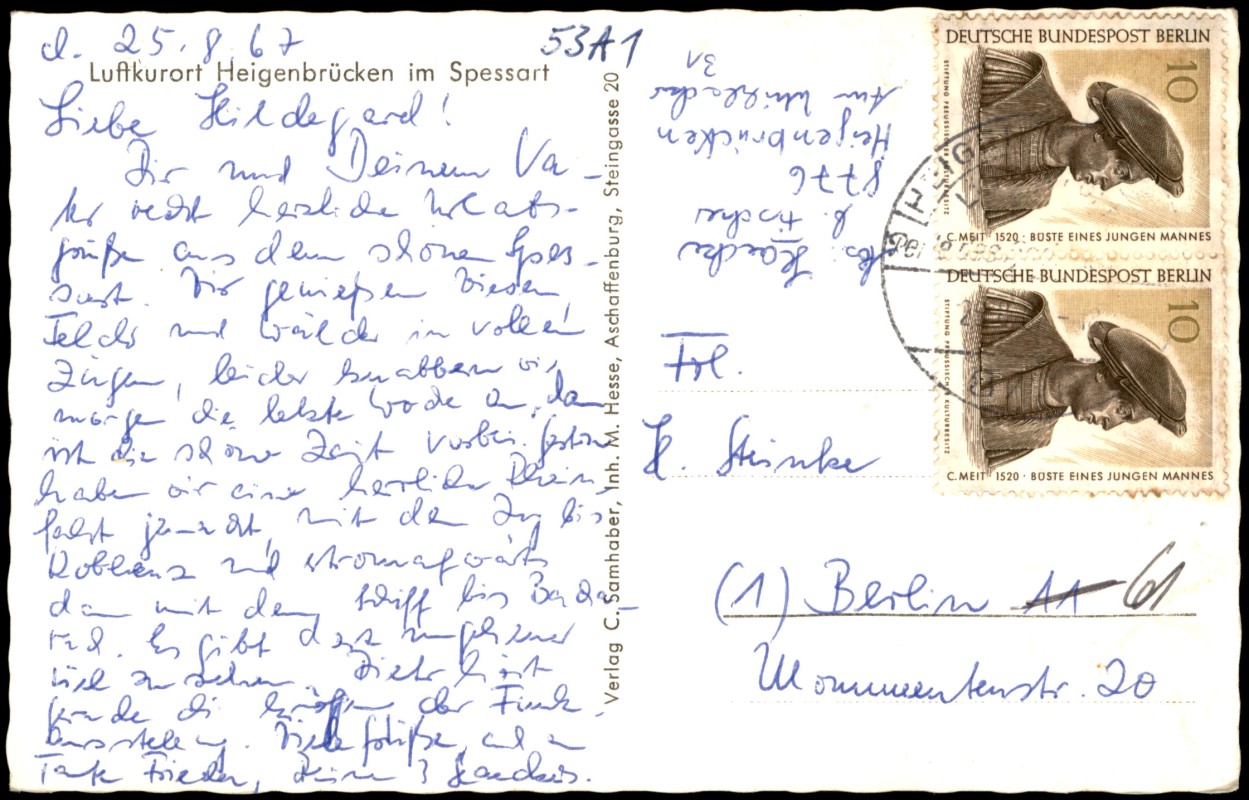 d. 25.8.67
53A1
Luftkurort Heigenbrücken im Spessart
Liebe Hildegard!
Dir und Deinem Va-
ter recht herzliche Urlaubs-
grüße aus dem schönen Spes-
sart. Wir genießen Wiesen,
Felder und Wälder in vollen
Zügen, leider knabbern wir
morgen die letzte Woche an, dann
ist die schöne Zeit vorbei. Gestern
haben wir eine herrliche Rhein-
fahrt gemacht, mit dem Zug bis
Koblenz und stromaufwärts
dann mit dem Schiff bis Bacha-
rach. Es gibt dort
viel zu sehen. Dieter hört
gerade die der Funk-
ausstellung. Viele Grüße, auch an
Tante Frieda, Deine 3 Haackes.
Verlag C. Samhaber, Inh. M. Hesse, Aschaffenburg, Steingasse 20
Abs: Haacke
b. Fischer
8776
Heigenbrücken
Am
31
DEUTSCHE BUNDESPOST BERLIN
10
STIFTUNG PREUSSISCHER KULTURBESITZ
C. MEIT 1520 · BÜSTE EINES JUNGEN MANNES
DEUTSCHE BUNDESPOST BERLIN
10
STIFTUNG PREUSSISCHER KULTURBESITZ
C. MEIT 1520 · BÜSTE EINES JUNGEN MANNES
Frl.
H. Steinke
(1) Berlin 11 61
Mommsentenstr. 20